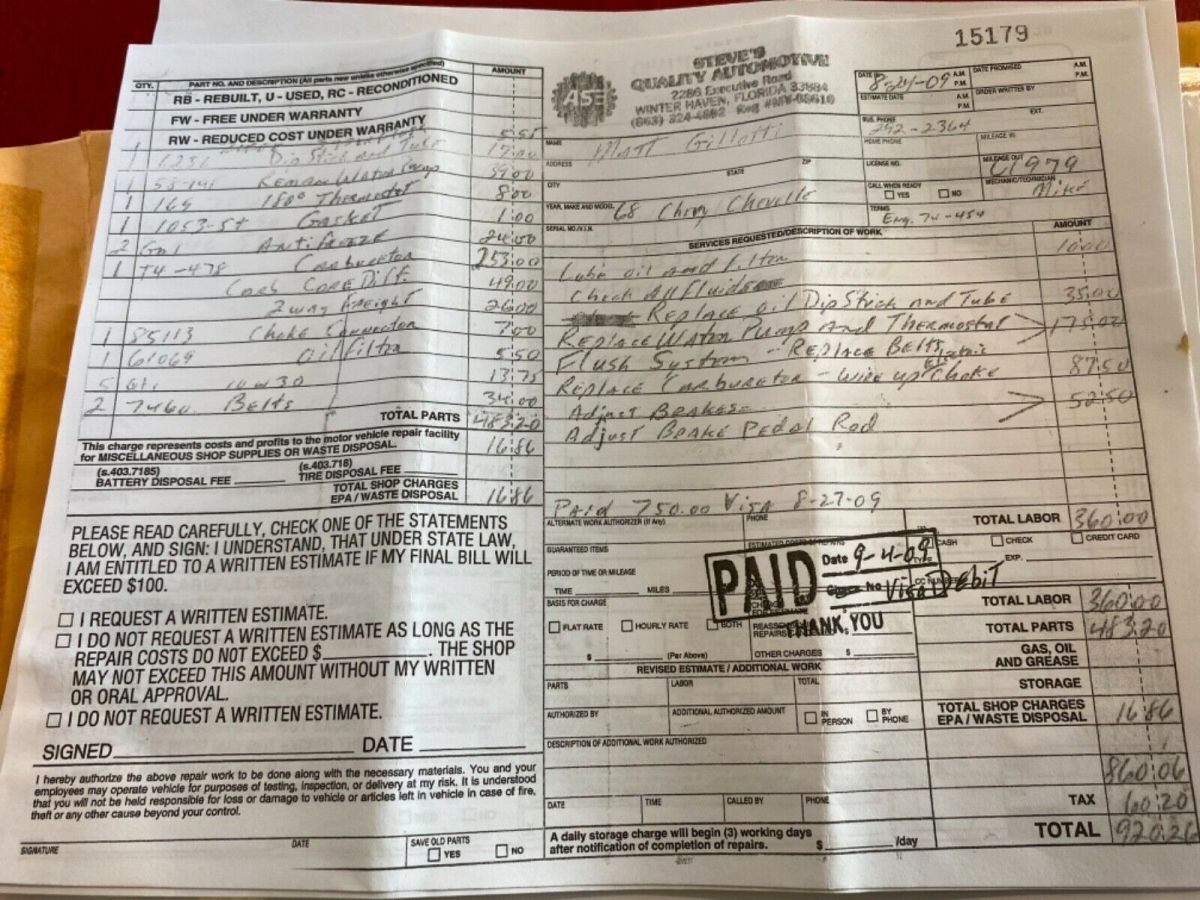 15179
QTY. PART NO. AND DESCRIPTION (All parts new unless otherwise specified) AMOUNT
RB - REBUILT, U - USED, RC - RECONDITIONED
FW - FREE UNDER WARRANTY
RW - REDUCED COST UNDER WARRANTY
5.55
1 Dip Stick and Tube 17.00
1 Reman Water Pump 59.00
1 169 180° Thermostat 8.00
1 1053-St Gasket 1.00
2 Gal Antifreeze 24.00
1 T4-478 Carburetor 253.00
Carb Core Diff. 49.00
2 way freight 26.00
1 85113 Choke Connector 7.00
1 61069 Oil filter 5.50
5 Qts 10w30 13.75
2 7460 Belts 34.00
TOTAL PARTS 483.20
This charge represents costs and profits to the motor vehicle repair facility
for MISCELLANEOUS SHOP SUPPLIES OR WASTE DISPOSAL. 16.86
(s.403.7185) (s.403.718)
BATTERY DISPOSAL FEE TIRE DISPOSAL FEE
TOTAL SHOP CHARGES
EPA / WASTE DISPOSAL 16.86
PLEASE READ CAREFULLY, CHECK ONE OF THE STATEMENTS
BELOW, AND SIGN: I UNDERSTAND, THAT UNDER STATE LAW,
I AM ENTITLED TO A WRITTEN ESTIMATE IF MY FINAL BILL WILL
EXCEED $100.
I REQUEST A WRITTEN ESTIMATE.
I DO NOT REQUEST A WRITTEN ESTIMATE AS LONG AS THE
REPAIR COSTS DO NOT EXCEED $ . THE SHOP
MAY NOT EXCEED THIS AMOUNT WITHOUT MY WRITTEN
OR ORAL APPROVAL.
I DO NOT REQUEST A WRITTEN ESTIMATE.
SIGNED DATE
I hereby authorize the above repair work to be done along with the necessary materials. You and your
employees may operate vehicle for purposes of testing, inspection, or delivery at my risk. It is understood
that you will not be held responsible for loss or damage to vehicle or articles left in vehicle in case of fire,
theft or any other cause beyond your control.
SIGNATURE DATE
SAVE OLD PARTS
YES NO
ASE
STEVE'S
QUALITY AUTOMOTIVE
2286 Executive Road
WINTER HAVEN, FLORIDA 33884
(863) 324-4892
DATE IN 8-24-09 A.M. P.M. DATE PROMISED A.M. P.M.
ESTIMATE DATE A.M. P.M. ORDER WRITTEN BY
BUS. PHONE EXT.
292-2364
HOME PHONE MILEAGE IN
LICENSE NO. MILEAGE OUT 61979
CALL WHEN READY YES NO MECHANIC/TECHNICIAN Mike
TERMS Eng. 74-454
NAME Matt Gillotti
ADDRESS STATE ZIP
CITY
YEAR, MAKE AND MODEL 68 Chevy Chevelle
SERIAL NO./V.I.N.
SERVICES REQUESTED/DESCRIPTION OF WORK AMOUNT
Lube oil and filter 10.00
Check All Fluids
Replace oil Dip Stick and Tube 35.00
Replace Water Pump And Thermostat 175.00
Flush System - Replace Belts
Replace Carburetor - wire up Electric Choke 87.50
Adjust Brakes 52.50
Adjust Brake Pedal Rod
Paid 750.00 Visa 8-27-09
ALTERNATE WORK AUTHORIZER (If Any) PHONE
TOTAL LABOR 360.00
GUARANTEED ITEMS ESTIMATED COSTS OF REPAIRS
CASH CHECK CREDIT CARD
PERIOD OF TIME OR MILEAGE
TIME MILES
EXP.
PAID
Date 9-4-09
Check No Visa Debit
THANK YOU
BASIS FOR CHARGE
FLAT RATE HOURLY RATE BOTH
$ (Per Above) OTHER CHARGES $
TOTAL LABOR 360.00
TOTAL PARTS 483.20
GAS, OIL
AND GREASE
STORAGE
TOTAL SHOP CHARGES
EPA / WASTE DISPOSAL 16.86
860.06
TAX 60.20
TOTAL 920.26
REVISED ESTIMATE / ADDITIONAL WORK
PARTS LABOR TOTAL
AUTHORIZED BY ADDITIONAL AUTHORIZED AMOUNT IN PERSON BY PHONE
DESCRIPTION OF ADDITIONAL WORK AUTHORIZED
DATE TIME CALLED BY PHONE
A daily storage charge will begin (3) working days
after notification of completion of repairs. $ /day